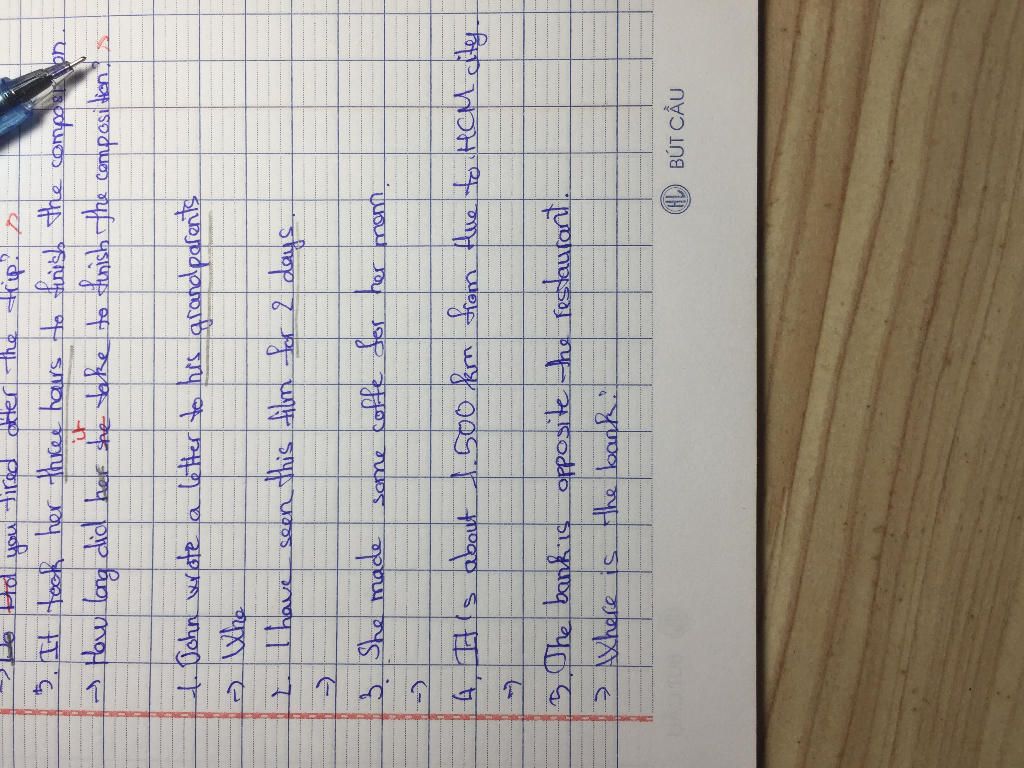 → Did you tired after the trip?
5. It took her three hours to finish the composition.
it
→ How long did her she take to finish the composition?
1. John wrote a letter to his grandparents
→ Who
2. I have seen this film for 2 days.
→
3. She made some coffe for her mom.
→
4. It is about 1.500 km from Hue to HCM city.
→
5. The bank is opposite the restaurant.
→ Where is the bank?
HL BÚT CẦU